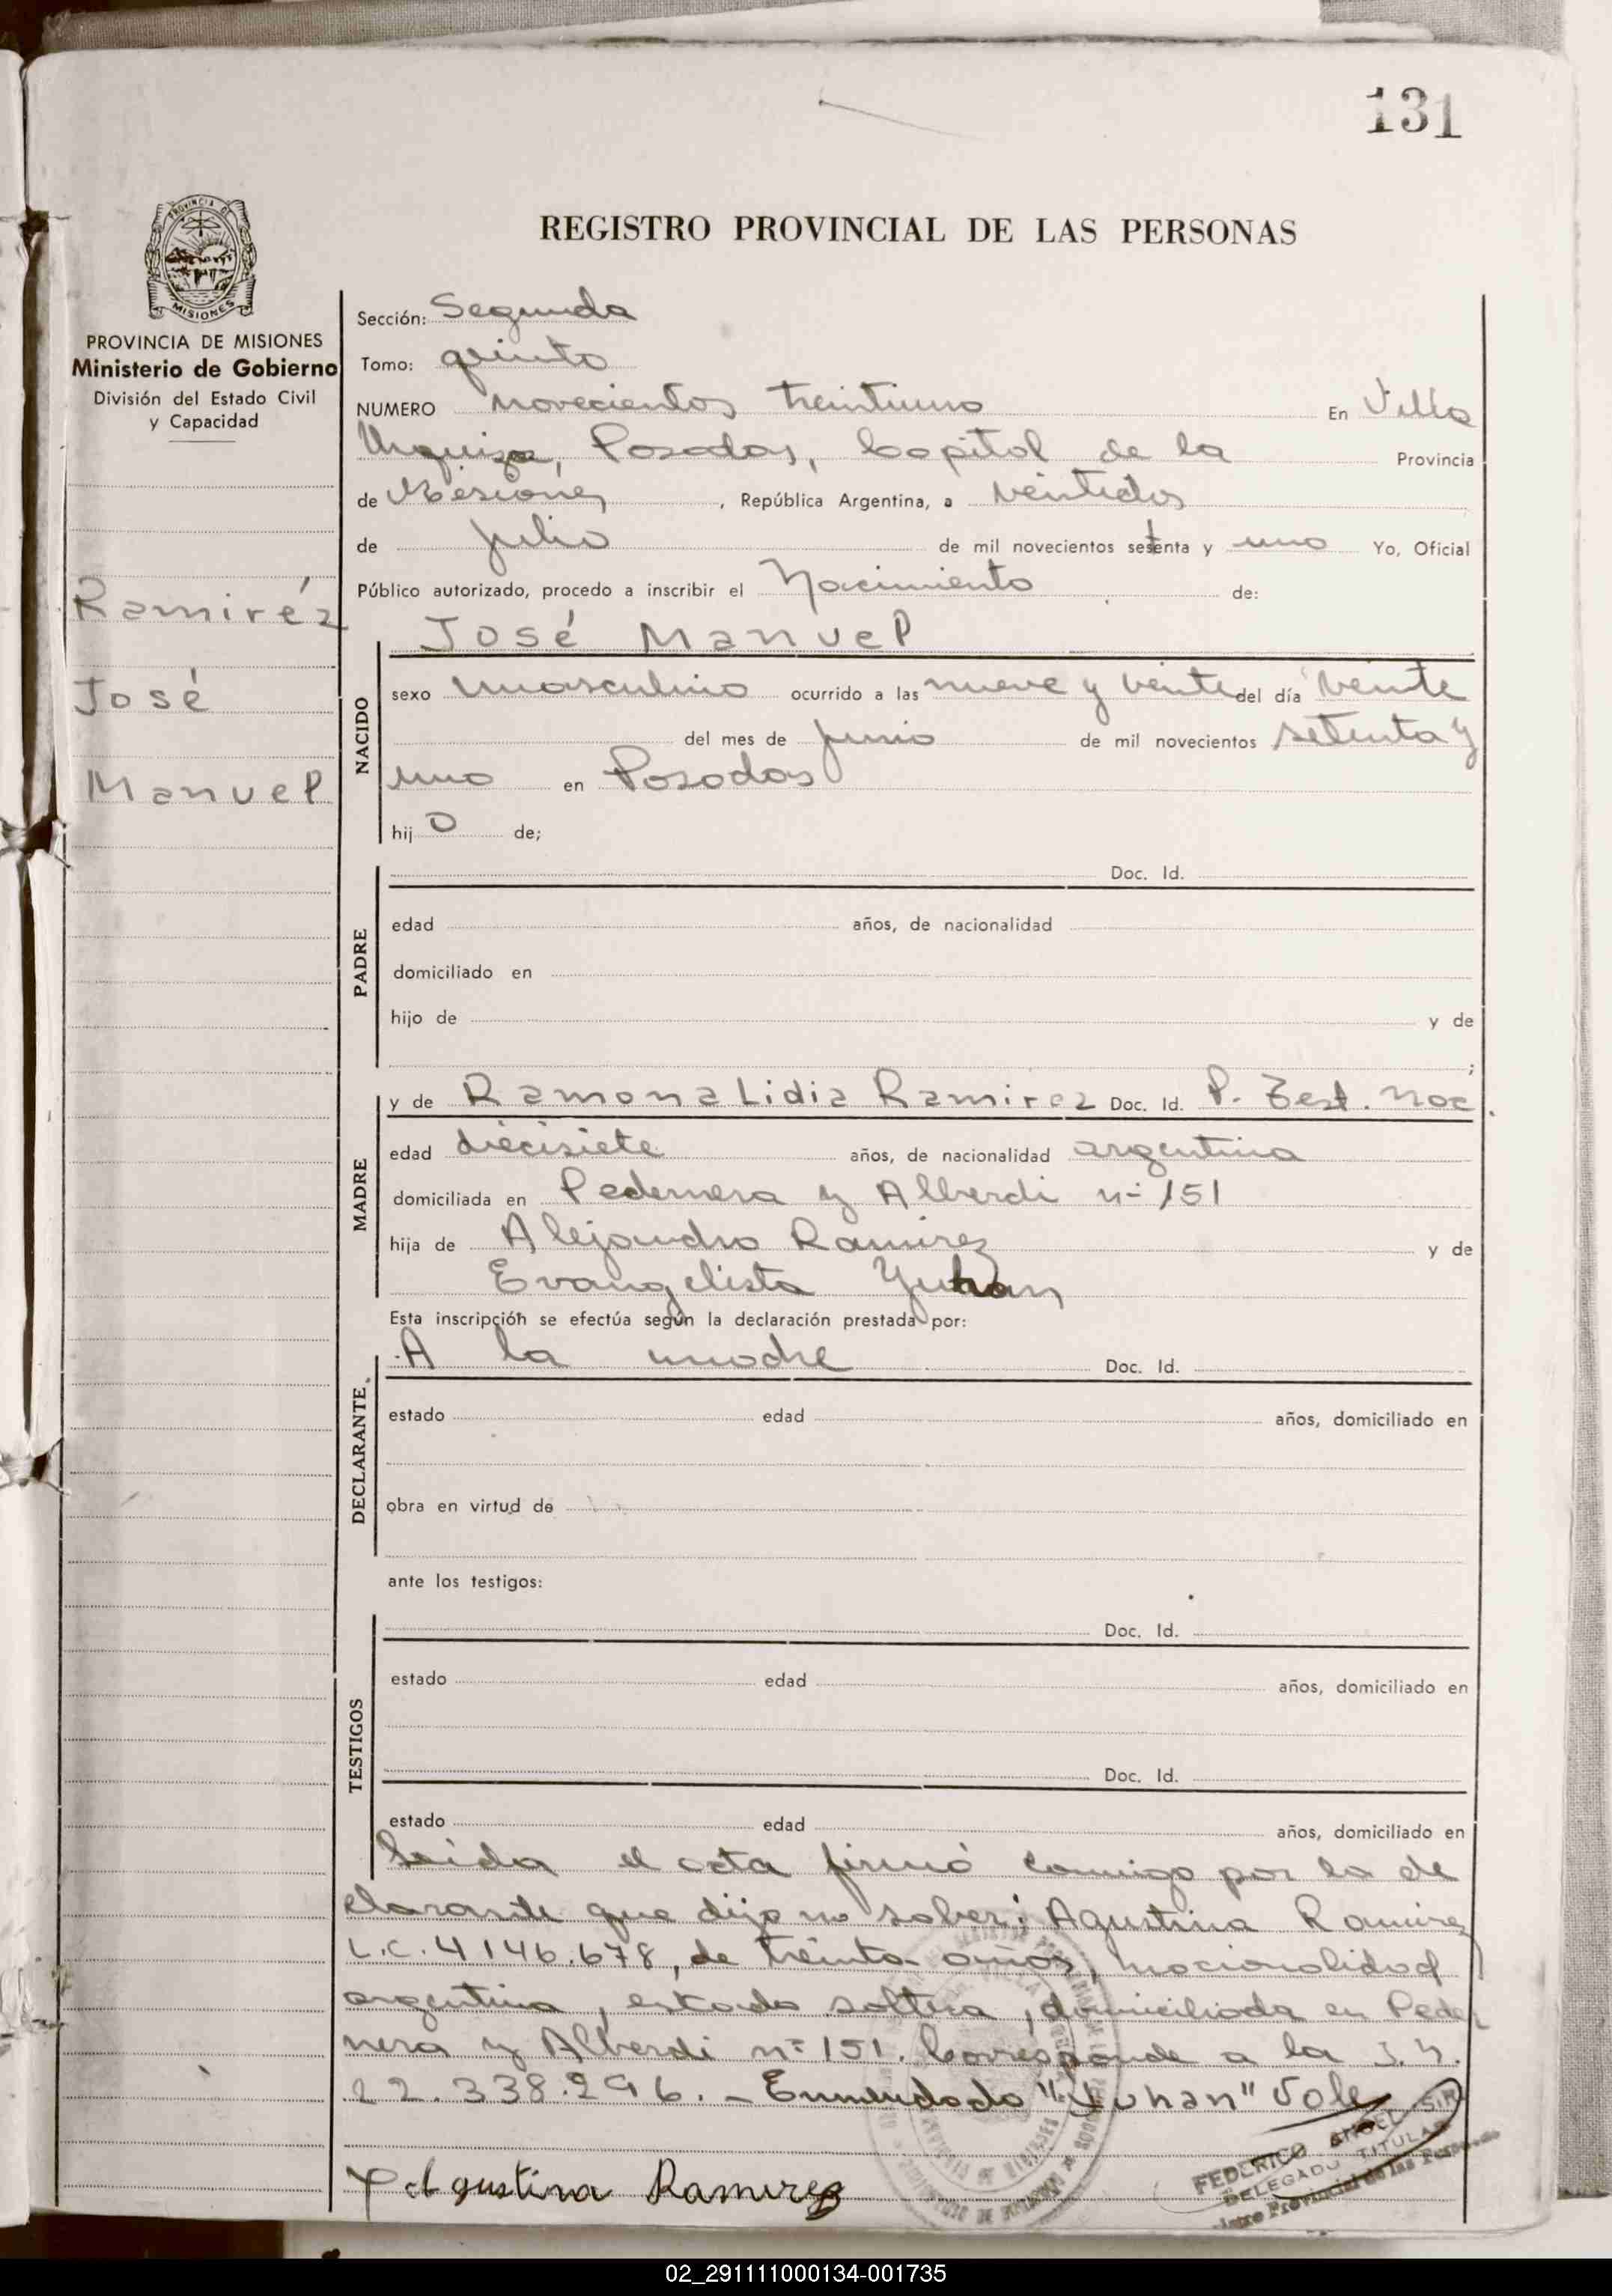 131
REGISTRO PROVINCIAL DE LAS PERSONAS
PROVINCIA DE
MISIONES
PROVINCIA DE MISIONES
Ministerio de Gobierno
División del Estado Civil
y Capacidad
Ramiréz
José
Manuel
Sección: Segunda
Tomo: quinto
NUMERO novecientos treintiuno En Villa
Urquiza, Posadas, Capital de la Provincia
de Misiones, República Argentina, a veintidos
de julio de mil novecientos setenta y uno Yo, Oficial
Público autorizado, procedo a inscribir el Nacimiento de:
José Manuel
NACIDO
sexo masculino ocurrido a las nueve y veinte del día veinte
del mes de junio de mil novecientos setenta y
uno en Posadas
hijo de;
PADRE
Doc. Id.
edad años, de nacionalidad
domiciliado en
hijo de y de
;
MADRE
y de Ramona Lidia Ramirez Doc. Id. P. Test. Nac.
edad diecisiete años, de nacionalidad argentina
domiciliada en Pedernera y Alberdi nº 151
hija de Alejandro Ramirez y de
Evangelista Yuhan
Esta inscripción se efectúa según la declaración prestada por:
DECLARANTE.
A la madre Doc. Id.
estado edad años, domiciliado en
obra en virtud de
ante los testigos:
TESTIGOS
Doc. Id.
estado edad años, domiciliado en
Doc. Id.
estado edad años, domiciliado en
Leida el acta firmó conmigo por la de
clarante que dijo no saber; Agustina Ramirez
L.C. 4146.678, de treinta años, nacionalidad
argentina, estado soltera, domiciliada en Peder
nera y Alberdi nº 151. Corresponde a la
22.338.296. - Enmendado "Yuhan" Vale
Agustina Ramirez
FEDERICO ANGEL
DELEGADO TITULAR
Provincial de las Personas
02_291111000134-001735